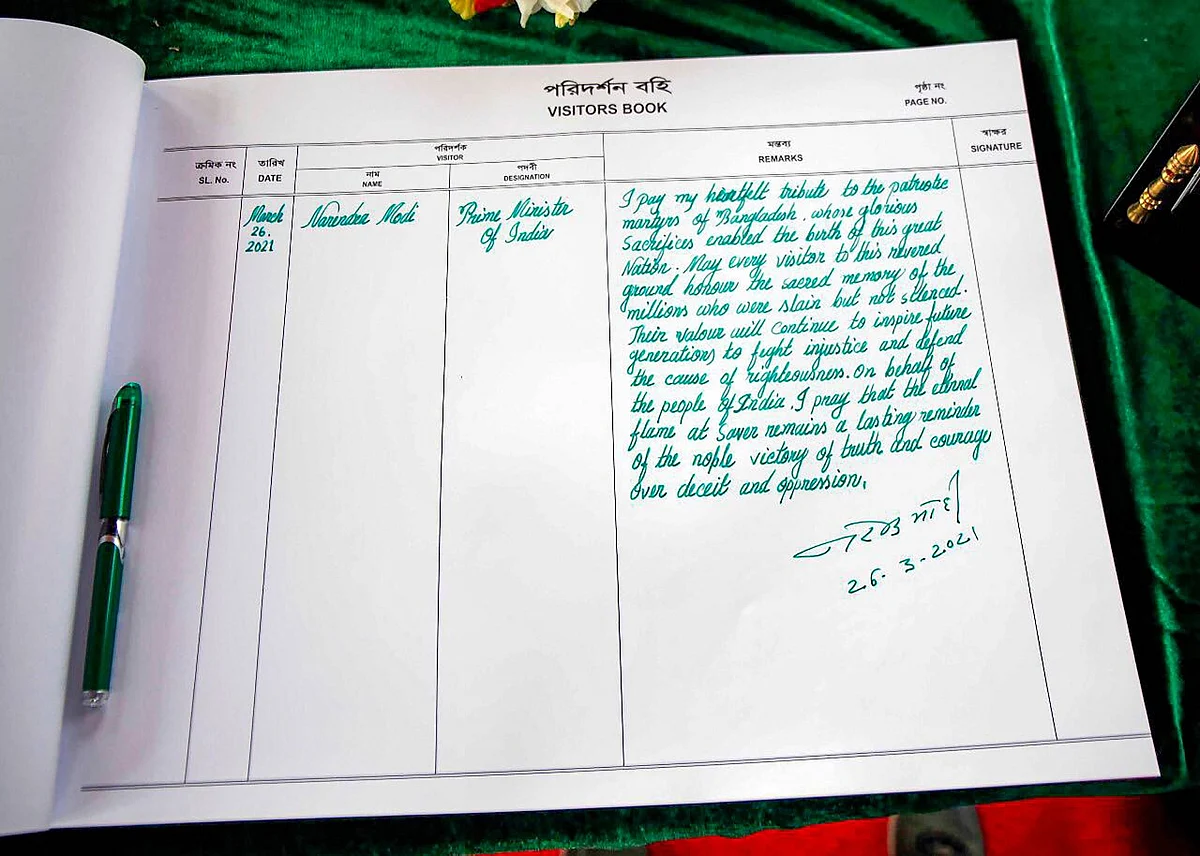 পরিদর্শন বহি
VISITORS BOOK
পৃষ্ঠা নং
PAGE NO.
ক্রমিক নং
SL. No.
তারিখ
DATE
পরিদর্শক
VISITOR
নাম
NAME
পদবী
DESIGNATION
মন্তব্য
REMARKS
স্বাক্ষর
SIGNATURE
March
26.
2021
Narendra Modi
Prime Minister
Of India
I pay my heartfelt tribute to the patriotic
martyrs of Bangladesh. whose glorious
Sacrifices enabled the birth of this great
Nation. May every visitor to this revered
ground honour the sacred memory of the
millions who were slain but not silenced.
Their valour will continue to inspire future
generations to fight injustice and defend
the cause of righteousness. On behalf of
the people of India. I pray that the eternal
flame at Saver remains a lasting reminder
of the nople victory of truth and courage
over deceit and oppression.
26-3-2021